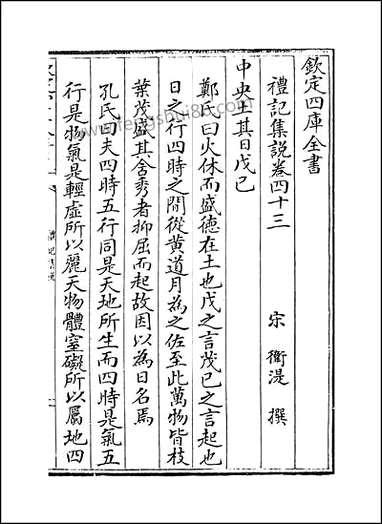 欽定四庫全書
禮記集說卷四十三
宋 衛湜 撰
中央土其日戊己
鄭氏曰火休而盛德在土也戊之言茂己之言起也
日之行四時之間從黄道月為之佐至此萬物皆枝
葉茂盛其含秀者抑屈而起故因以為日名焉
孔氏曰夫四時五行同是天地所生而四時是氣五
行是物氣是輕虛所以麗天物體室礙所以屬地四